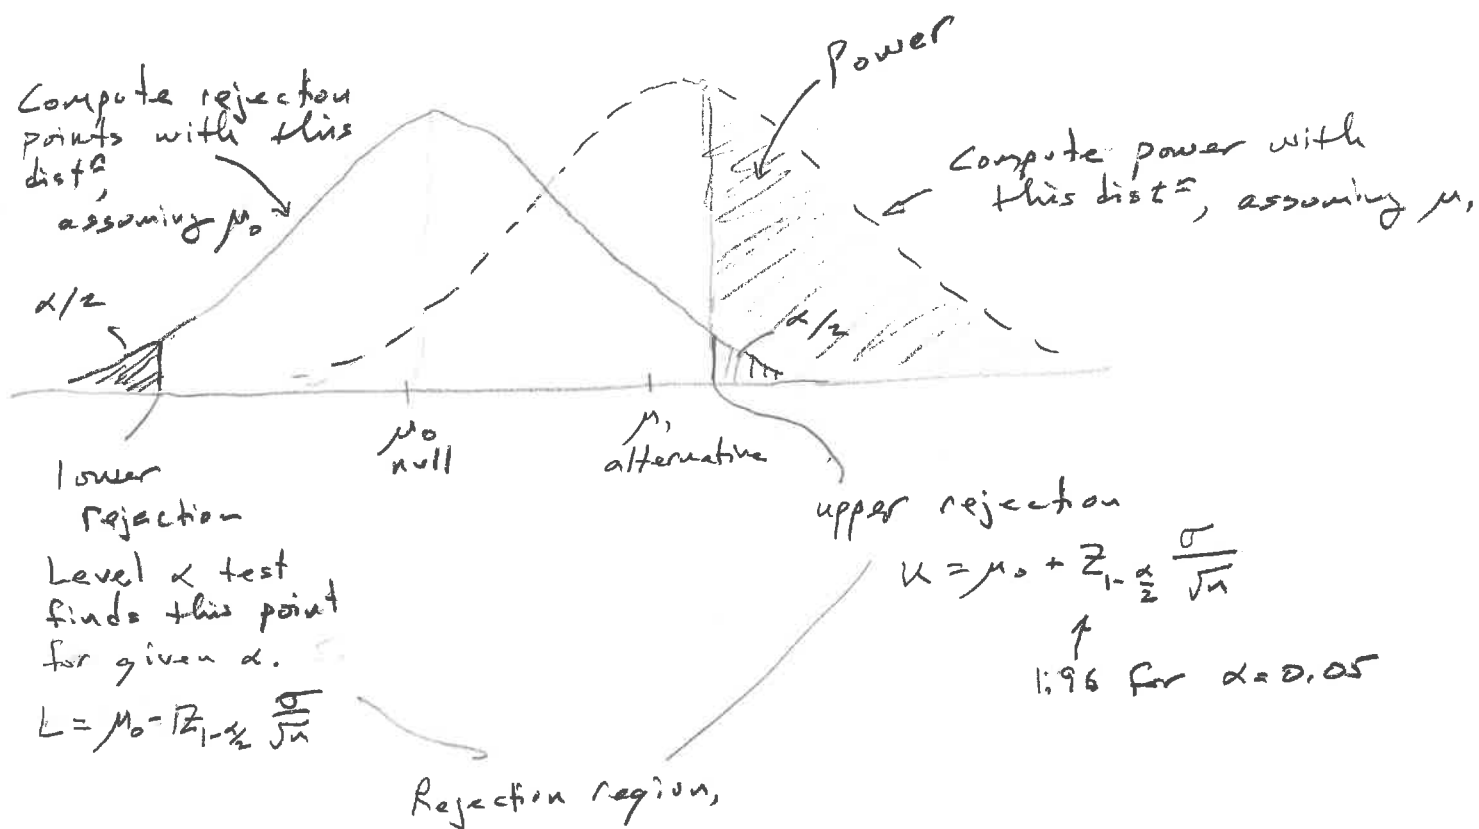 Power
Compute rejection
points with this
distⁿ,
assuming μ₀
Compute power with
this distⁿ, assuming μ₁
α/2
α/2
μ₀
null
μ₁
alternative
lower
rejection
Level α test
finds this point
for given α.
L = μ₀ - Z_{1-α/2} σ/√n
upper rejection
u = μ₀ + Z_{1-α/2} σ/√n
↑
1.96 for α=0.05
Rejection region,